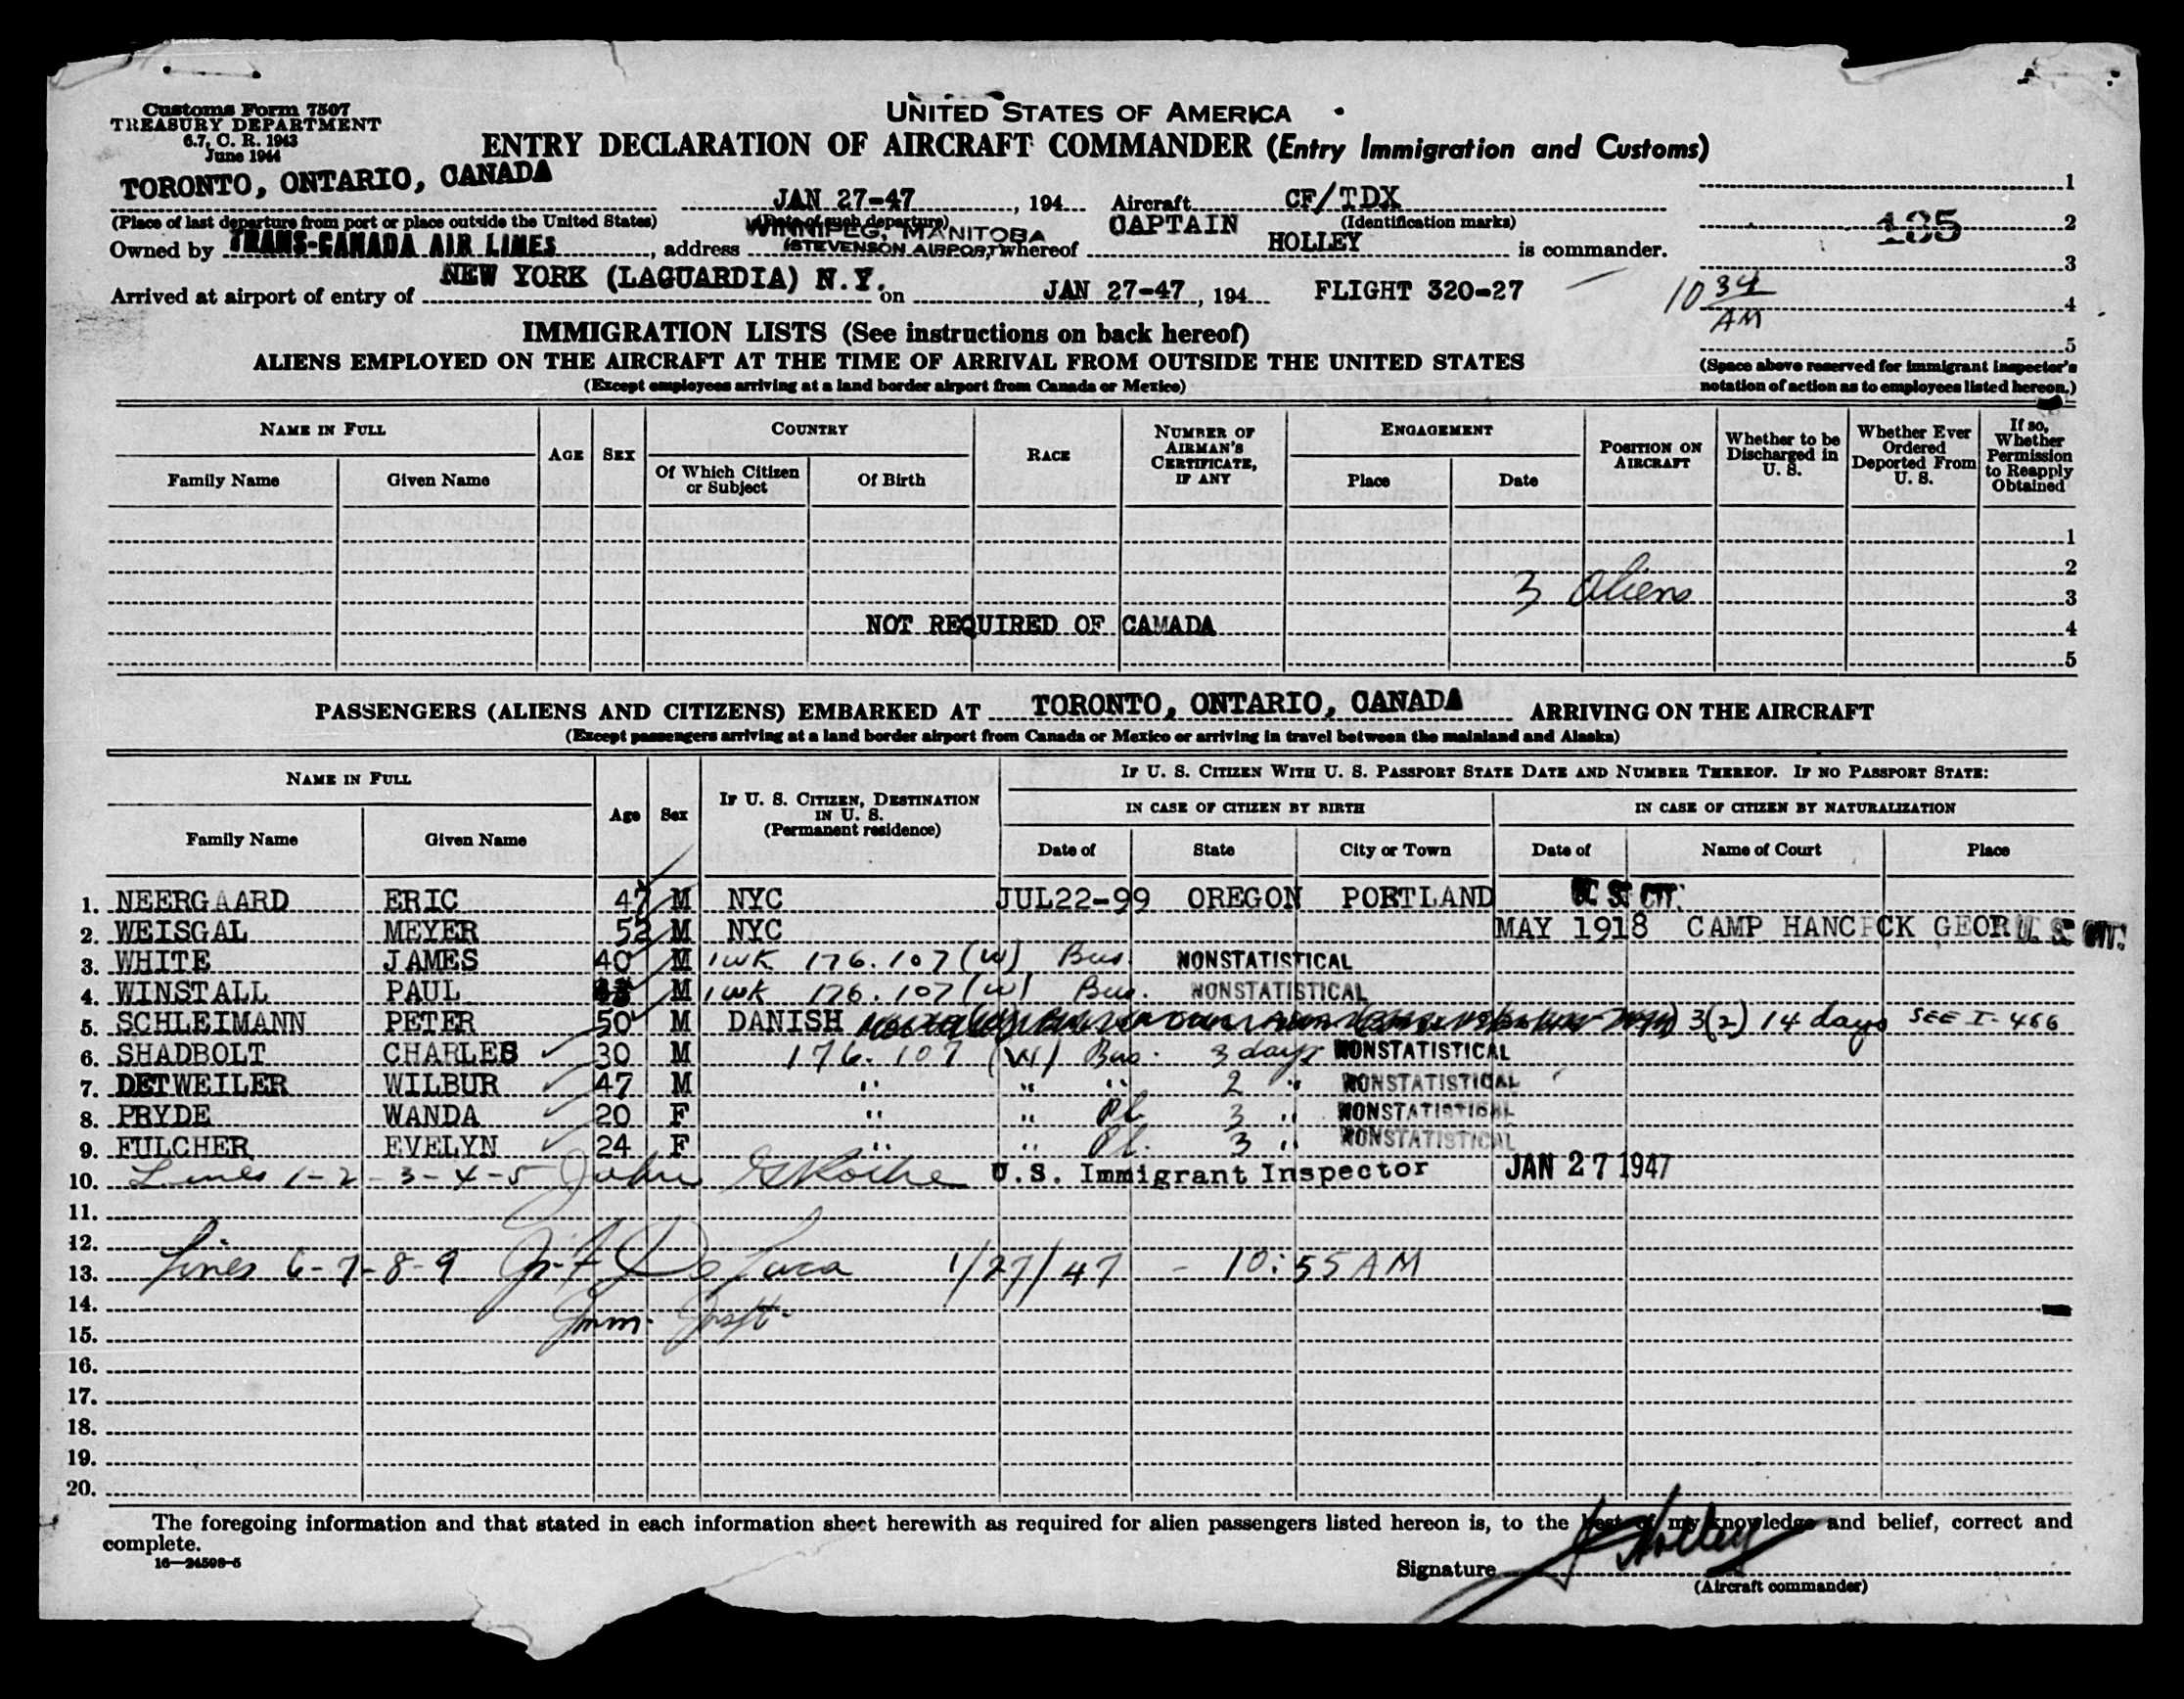 Customs Form 7507
TREASURY DEPARTMENT
6.7, C. R. 1943
June 1944
UNITED STATES OF AMERICA
ENTRY DECLARATION OF AIRCRAFT COMMANDER (Entry Immigration and Customs)
TORONTO, ONTARIO, CANADA JAN 27-47, 194 Aircraft CF/TDX 1
(Place of last departure from port or place outside the United States) (Date of such departure) (Identification marks) 185 2
Owned by TRANS-CANADA AIR LINES, address WINNIPEG, MANITOBA (STEVENSON AIRPORT) whereof CAPTAIN HOLLEY is commander. 3
Arrived at airport of entry of NEW YORK (LAGUARDIA) N.Y. on JAN 27-47, 194 FLIGHT 320-27 10 34 AM 4
5
(Space above reserved for immigrant inspector's notation of action as to employees listed hereon.)
IMMIGRATION LISTS (See instructions on back hereof)
ALIENS EMPLOYED ON THE AIRCRAFT AT THE TIME OF ARRIVAL FROM OUTSIDE THE UNITED STATES
(Except employees arriving at a land border airport from Canada or Mexico)
NAME IN FULL AGE SEX COUNTRY RACE NUMBER OF AIRMAN'S CERTIFICATE, IF ANY ENGAGEMENT POSITION ON AIRCRAFT Whether to be Discharged in U. S. Whether Ever Ordered Deported From U. S. If so, Whether Permission to Reapply Obtained
Family Name Given Name Of Which Citizen or Subject Of Birth Place Date
1
2
3 Aliens 3
NOT REQUIRED OF CAMADA 4
5
PASSENGERS (ALIENS AND CITIZENS) EMBARKED AT TORONTO, ONTARIO, CANADA ARRIVING ON THE AIRCRAFT
(Except passengers arriving at a land border airport from Canada or Mexico or arriving in travel between the mainland and Alaska)
NAME IN FULL Age Sex IF U. S. CITIZEN, DESTINATION IN U. S. (Permanent residence) IF U. S. CITIZEN WITH U. S. PASSPORT STATE DATE AND NUMBER THEREOF. IF NO PASSPORT STATE:
IN CASE OF CITIZEN BY BIRTH IN CASE OF CITIZEN BY NATURALIZATION
Family Name Given Name Date of State City or Town Date of Name of Court Place
1. NEERGAARD ERIC 47 M NYC JUL22-99 OREGON PORTLAND U. S. CIT.
2. WEISGAL MEYER 52 M NYC MAY 1918 CAMP HANCOCK GEOR U. S. CIT.
3. WHITE JAMES 40 M 1 WK 176.107 (W) Bus. NONSTATISTICAL
4. WINSTALL PAUL M 1 WK 176.107 (W) Bus. NONSTATISTICAL
5. SCHLEIMANN PETER 50 M DANISH 3(2) 14 days SEE I-466
6. SHADBOLT CHARLES 30 M 176.107 (W) Bus. 3 days NONSTATISTICAL
7. DETWEILER WILBUR 47 M " " " 2 " NONSTATISTICAL
8. PRYDE WANDA 20 F " " Pl. 3 " NONSTATISTICAL
9. FULCHER EVELYN 24 F " " Pl. 3 " NONSTATISTICAL
10. Lines 1-2-3-4-5 John U.S. Immigrant Inspector JAN 27 1947
11.
12.
13. Lines 6-7-8-9 De Luca 1/27/47 - 10:55 AM
14.
15. Imm. Inspt.
16.
17.
18.
19.
20.
The foregoing information and that stated in each information sheet herewith as required for alien passengers listed hereon is, to the best of my knowledge and belief, correct and
complete.
16—24598-5
Signature Holley
(Aircraft commander)